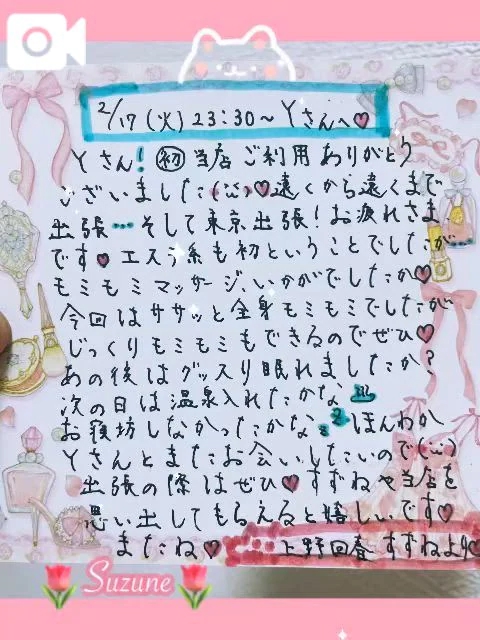 2/17(火)23:30~Yさんへ♡
Yさん!㊗初当店ご利用ありがとう
ございました(¨̮)♡遠くから遠くまで
出張…そして東京出張!お疲れさま
です♡エステ系も初ということでしたが
モミモミマッサージ、いかがでしたか♡
今回はササッと全身モミモミでしたが
じっくりモミモミもできるのでぜひ♡
あの後はグッスリ眠れましたか?
次の日は温泉入れたかな♨
お寝坊しなかったかなzzほんわか
Yさんとまたお会いしたいので(¨̮)
出張の際はぜひ♡すずねや当店を
思い出してもらえると嬉しいです♡
またね♡ 上野回春すずねより♡
Suzune